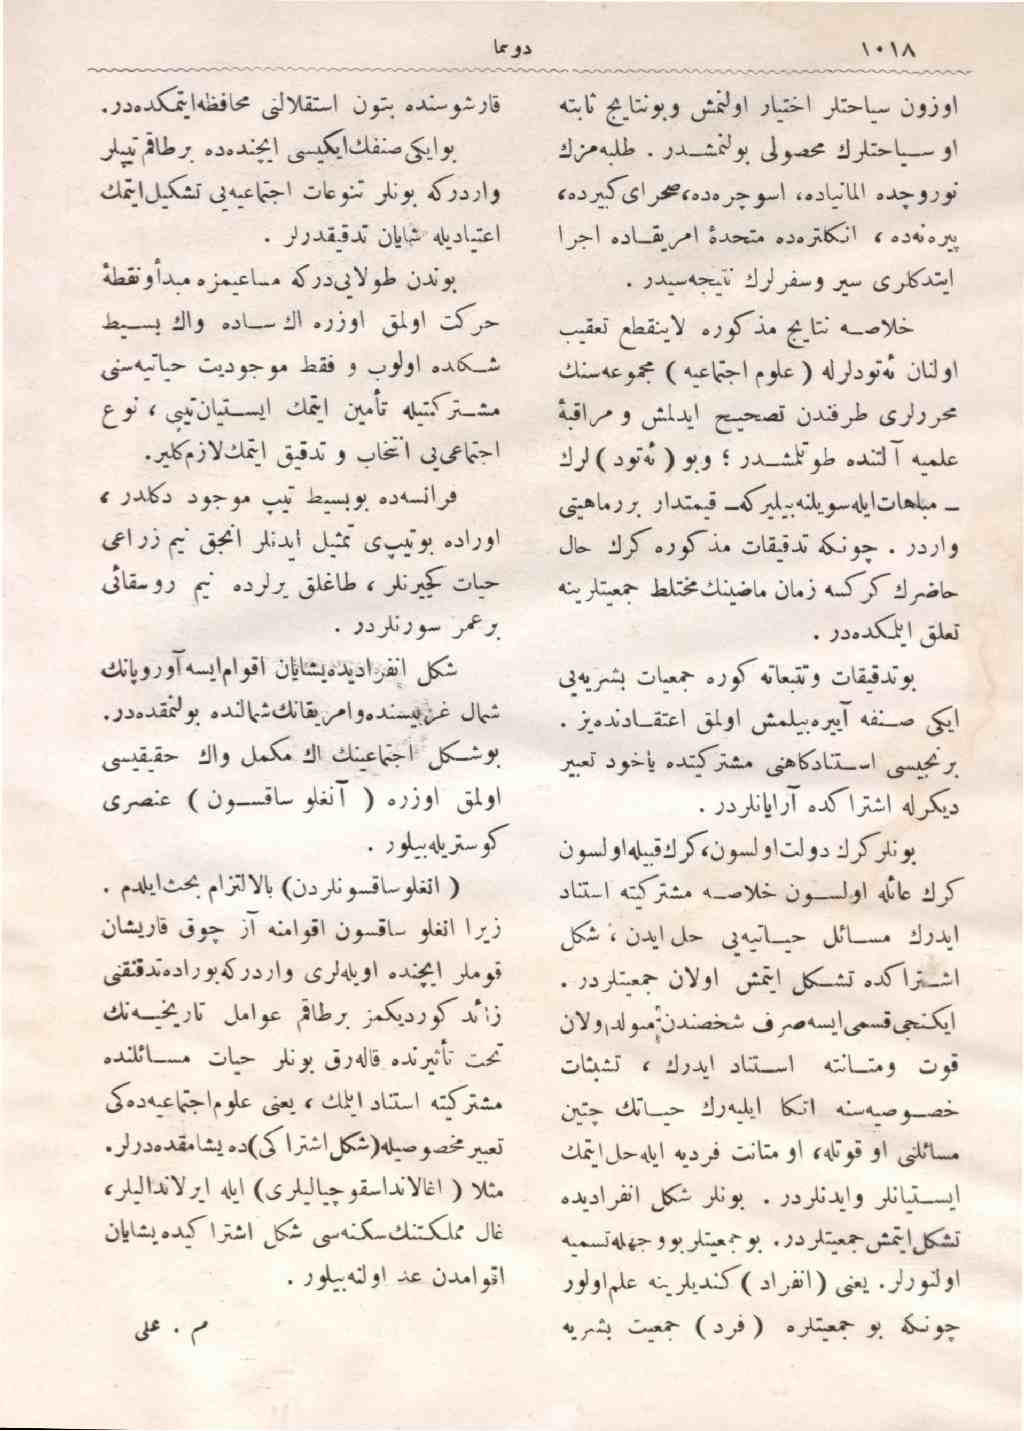 ١٠١٨
دوسما
اوزون سیاحتلر اختیار اولنمش وبونتایج ثابته
او سیاحتلرك محصولی بولنمشدر . طلبه‌مزك
نوروچده المانیاده، اسوچره‌ده، صحرای کبیرده،
پیره‌نه‌ده ، انکلتره‌ده متحدهٔ امریقاده اجرا
ایتدکلری سیر وسفرلرك نتیجه‌سیدر .
خلاصه نتایج مذکوره لاینقطع تعقیب
اولنان ئه‌تودلرله ( علوم اجتماعیه ) مجموعه‌سنك
محررلری طرفندن تصحیح ایدلمش و مراقبهٔ
علمیه آلتنده طوتلمشدر ؛ وبو ( ئه‌تود ) لرك
ـ مباهات ایله سویلنه‌بیلیرکه ـ قیمتدار بررماهیتی
واردر . چونکه تدقیقات مذکوره کرك حال
حاضرك کرکسه زمان ماضینك مختلط جمعیتلرینه
تعلق ایلمکده‌در .
بوتدقیقات وتتبعاته کوره جمعیات بشریه‌یی
ایکی صنفه آییره‌بیلمش اولمق اعتقادنده‌یز .
برنجیسی استنادکاهنی مشترکیتده یاخود تعبیر
دیکرله اشتراکده آرایانلردر .
بونلرکرك دولت اولسون، کرك قبیله اولسون
کرك عائله اولسون خلاصه مشترکیته استناد
ایدرك مسائل حیاتیه‌یی حل ایدن ، شکل
اشتراکده تشکل ایتمش اولان جمعیتلردر .
ایکنجی قسمی ایسه صرف شخصندن متولد اولان
قوت ومتانته استناد ایدرك ، تشبثات
خصوصیه‌سنه اتکا ایلیه‌رك حیاتك چتین
مسائلنی او قوتله، او متانت فردیه ایله حل ایتمك
ایستیانلر وایدنلردر . بونلر شکل انفرادیده
تشکل ایتمش جمعیتلردر. بوجمعیتلر بووجهله تسمیه
اولنورلر. یعنی (انفراد) کندیلرینه علم اولور
چونکه بو جمعیتلره (فرد) جمعیت بشریه
قارشوسنده بتون استقلالنی محافظه ایتمکده‌در.
بوایکی صنفك ایکیسی ایچنده‌ده برطاقم تیپلر
واردرکه بونلر تنوعات اجتماعیه‌یی تشکیل ایتمك
اعتیادیله شایان تدقیقدرلر .
بوندن طولایی‌درکه مساعیمزه مبدأونقطهٔ
حرکت اولمق اوزره اك ساده واك بسیط
شکلده اولوب و فقط موجودیت حیاتیه‌سنی
مشترکیتیله تأمین ایتمك ایستیان تیپی ، نوع
اجتماعی‌یی انتخاب و تدقیق ایتمك لازم کلیر.
فرانسه‌ده بوبسیط تیپ موجود دکلدر ،
اوراده بوتیپ‌ی تمثیل ایدنلر انجق نیم زراعی
حیات کچیرنلر ، طاغلق یرلرده نیم روستائی
برعمر سورنلردر .
شکل انفرادیده یشایان اقوام ایسه آوروپانك
شمال غربیسنده وامریقانك شمالنده بولنمقده‌در.
بوشکل اجتماعینك اك مکمل واك حقیقیسی
اولمق اوزره ( آنغلو ساقسون ) عنصری
کوستریله‌بیلور .
( انغلوساقسونلردن) بالالتزام بحث ایلدم .
زیرا انغلو ساقسون اقوامنه آز چوق قاریشان
قوملر ایچنده اویله‌لری واردرکه بوراده تدقیقنی
زائد کوردیکمز برطاقم عوامل تاریخیه‌نك
تحت تأثیرنده قاله‌رق بونلر حیات مسائلنده
مشترکیته استناد ایلمك ، یعنی علوم اجتماعیه‌ده‌کی
تعبیر مخصوصیله (شکل اشتراکی) ده یشامقده‌درلر.
مثلا ( اغالانداسقوچیالیلری) ایله ایرلاندالیلر،
غال مملکتنك سکنه‌سی شکل اشتراکیده یشایان
اقوامدن عد اولنه‌بیلور .
م . علی